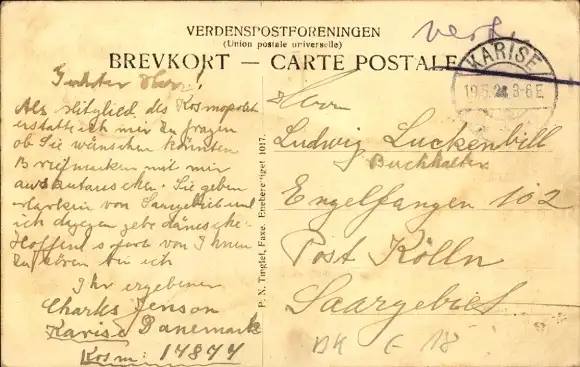 VERDENSPOSTFORENINGEN
(Union postale universelle)
BREVKORT — CARTE POSTALE
KARISE
19.5.24 3-6 E.
Geehrter Herr!
Als Mitglied des Kosmopolit
erstatte ich mir zu fragen
ob Sie wünschen könnten
Briefmarken mit mir
austauschen. Sie geben
Marken von Saargebiet und
ich dagegen gebe dänische.
Hoffend sofort von Ihnen
zu hören bin ich
Ihr ergebener
Charles Jenson
Karise Danemark
Kosm: 17877
P. N. Tinglef, Faxe. Eneberettiget 1017.
Herrn
Ludwig Luckenbill
Buchhalter
Engelfangen 102
Post Kölln
Saargebiet
DK
18